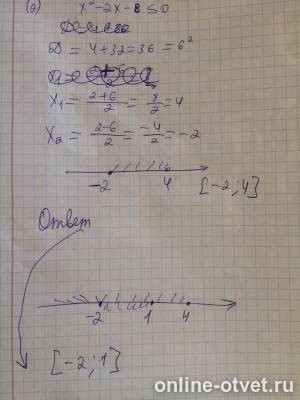 (2) x² - 2x - 8 ≤ 0
D = 4 + 32 = 36 = 6²
x₁ = (2+6)/2 = 8/2 = 4
x₂ = (2-6)/2 = -4/2 = -2
-2 4 [-2; 4]
Ответ
-2 1 4
[-2; 1]
online-otvet.ru